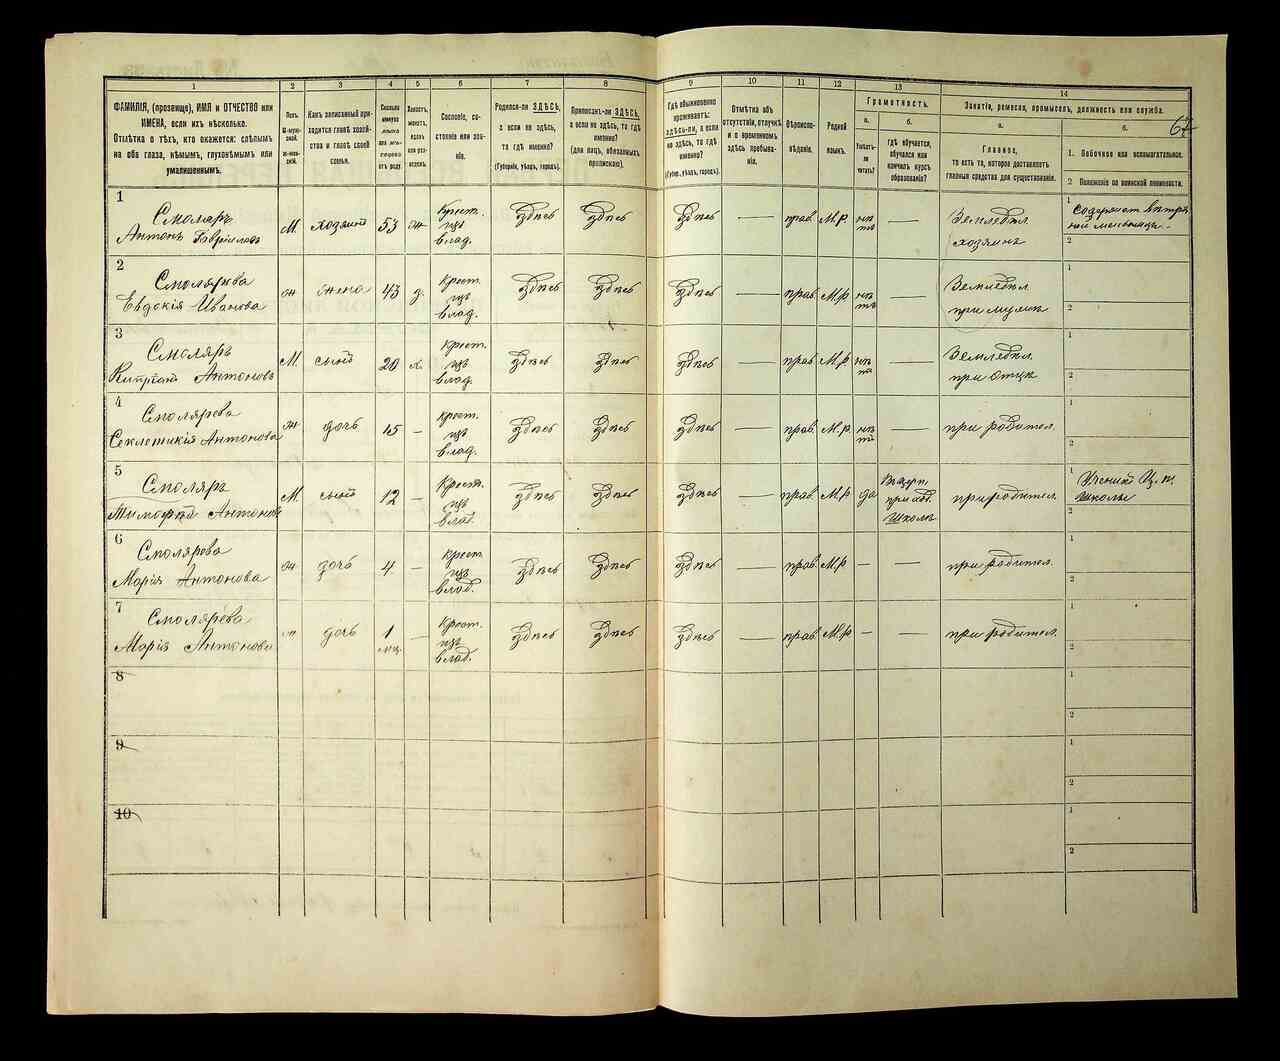 67
1 2 3 4 5 6 7 8 9 10 11 12 13 14
ФАМИЛІЯ, (прозвище), ИМЯ и ОТЧЕСТВО или
ИМЕНА, если ихъ нѣсколько.
Отмѣтка о тѣхъ, кто окажется: слѣпымъ
на оба глаза, нѣмымъ, глухонѣмымъ или
умалишеннымъ.
Полъ.
М-муж-
ской.
Ж-жен-
скій.
Какъ записанный при-
ходится главѣ хозяй-
ства и главѣ своей
семьи.
Сколько
минуло
лѣтъ
или мѣ-
сяцевъ
отъ роду.
Холостъ,
женатъ,
вдовъ
или раз-
веденъ.
Сословіе, со-
стояніе или зва-
ніе.
Родился-ли ЗДѢСЬ,
а если не здѣсь,
то гдѣ именно?
(Губернія, уѣздъ, городъ).
Приписанъ-ли ЗДѢСЬ,
а если не здѣсь, то гдѣ
именно?
(для лицъ, обязанныхъ
припискою).
Гдѣ обыкновенно
проживаетъ:
здѣсь-ли, а если
не здѣсь, то гдѣ
именно?
(Губерн., уѣздъ, городъ).
Отмѣтка объ
отсутствіи, отлучкѣ
и о временномъ
здѣсь пребыва-
ніи.
Вѣроиспо-
вѣданіе.
Родной
языкъ.
Грамотность.
а.
Умѣетъ-
ли
читать?
б.
Гдѣ обучается,
обучался или
кончилъ курсъ
образованія?
Занятіе, ремесло, промыселъ, должность или служба.
а.
Главное,
то есть то, которое доставляетъ
главныя средства для существованія.
б.
1. Побочное или вспомогательное.
2 Положеніе по воинской повинности.
1
Смоляръ
Антонъ Гавриловъ
М. хозяинъ 53 ж.
Крест.
изъ
влад.
здѣсь здѣсь здѣсь — прав. М.р. нѣ
тъ —
Земледѣл.
хозяинъ
1
содержит вѣтря
ной мельницы.
2
2
Смолярева
Евдокія Иванова
ж жена 43 з.
Крест.
изъ
влад.
здѣсь здѣсь здѣсь — прав. М.р нѣ
тъ —
Земледѣл.
при мужѣ
1
2
3
Смоляръ
Кипріанъ Антоновъ
М. сынъ 20 х.
Крест.
изъ
влад.
здѣсь здѣсь здѣсь — прав. М.р нѣ
тъ —
Земледѣл.
при отцѣ
1
2
4
Смолярева
Секлетикія Антонова
ж дочь 15 —
Крест.
изъ
влад.
здѣсь здѣсь здѣсь — прав. М.р. нѣ
тъ —
при родител.
1
2
5
Смоляръ
Тимофей Антоновъ
М. сынъ 12 —
Крест.
изъ
влад.
здѣсь здѣсь здѣсь — прав. М.р да
школѣ
при родител.
1
Ученикъ Ц. п.
школы
2
6
Смолярева
Марія Антонова
ж дочь 4 —
Крест
изъ
влад.
здѣсь здѣсь здѣсь — прав. М.р — —
при родител.
1
2
7
Смолярева
Марія Антонова
ж дочь 1
мц. —
Крест.
изъ
влад.
здѣсь здѣсь здѣсь — прав. М.р — —
при родител.
1
2
8
1
2
9
1
2
10
1
2